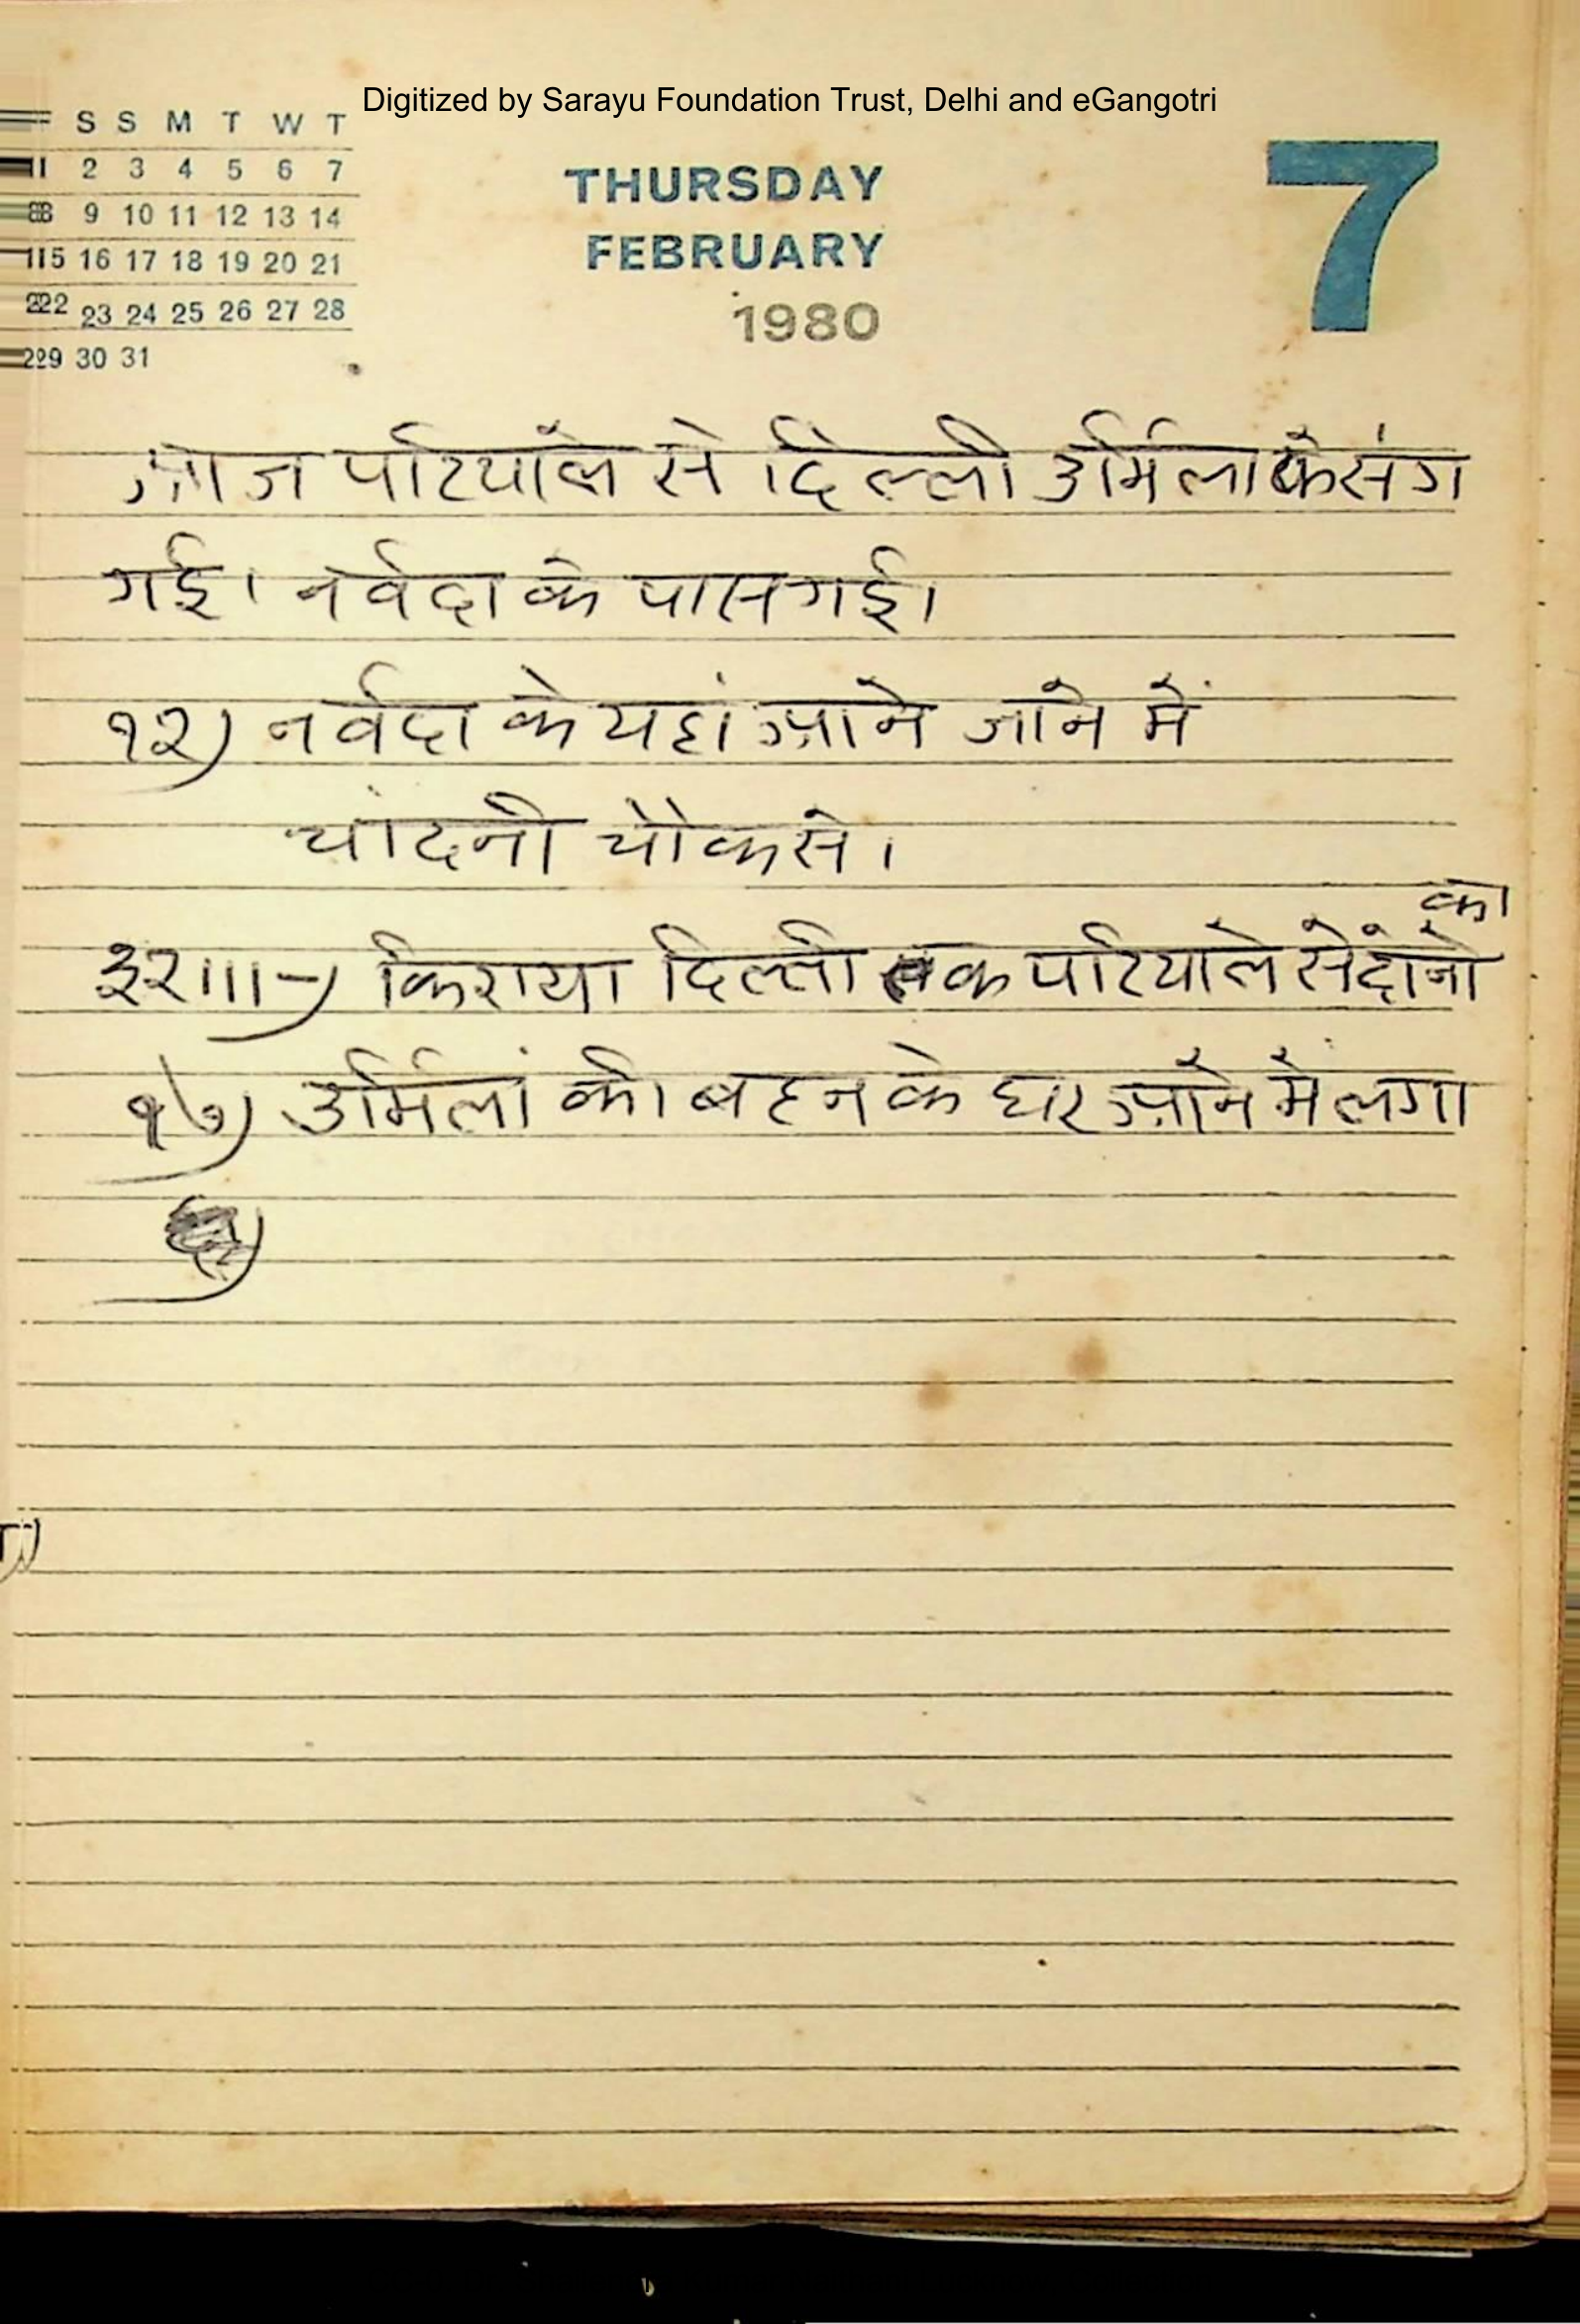 Digitized by Sarayu Foundation Trust, Delhi and eGangotri
F S S M T W T
1 2 3 4 5 6 7
8 9 10 11 12 13 14
15 16 17 18 19 20 21
22 23 24 25 26 27 28
29 30 31
THURSDAY
FEBRUARY
1980
7
आज पटियाले से दिल्ली उर्मिला के संग
गई। नर्वदा के पास गई।
१२) नर्वदा के यहां आने जाने में
चांदनी चौक से।
का
३२।।।-) किराया दिल्ली तक पटियाले से दोनों
१७) उर्मिलां की बहन के घर आने में लगा